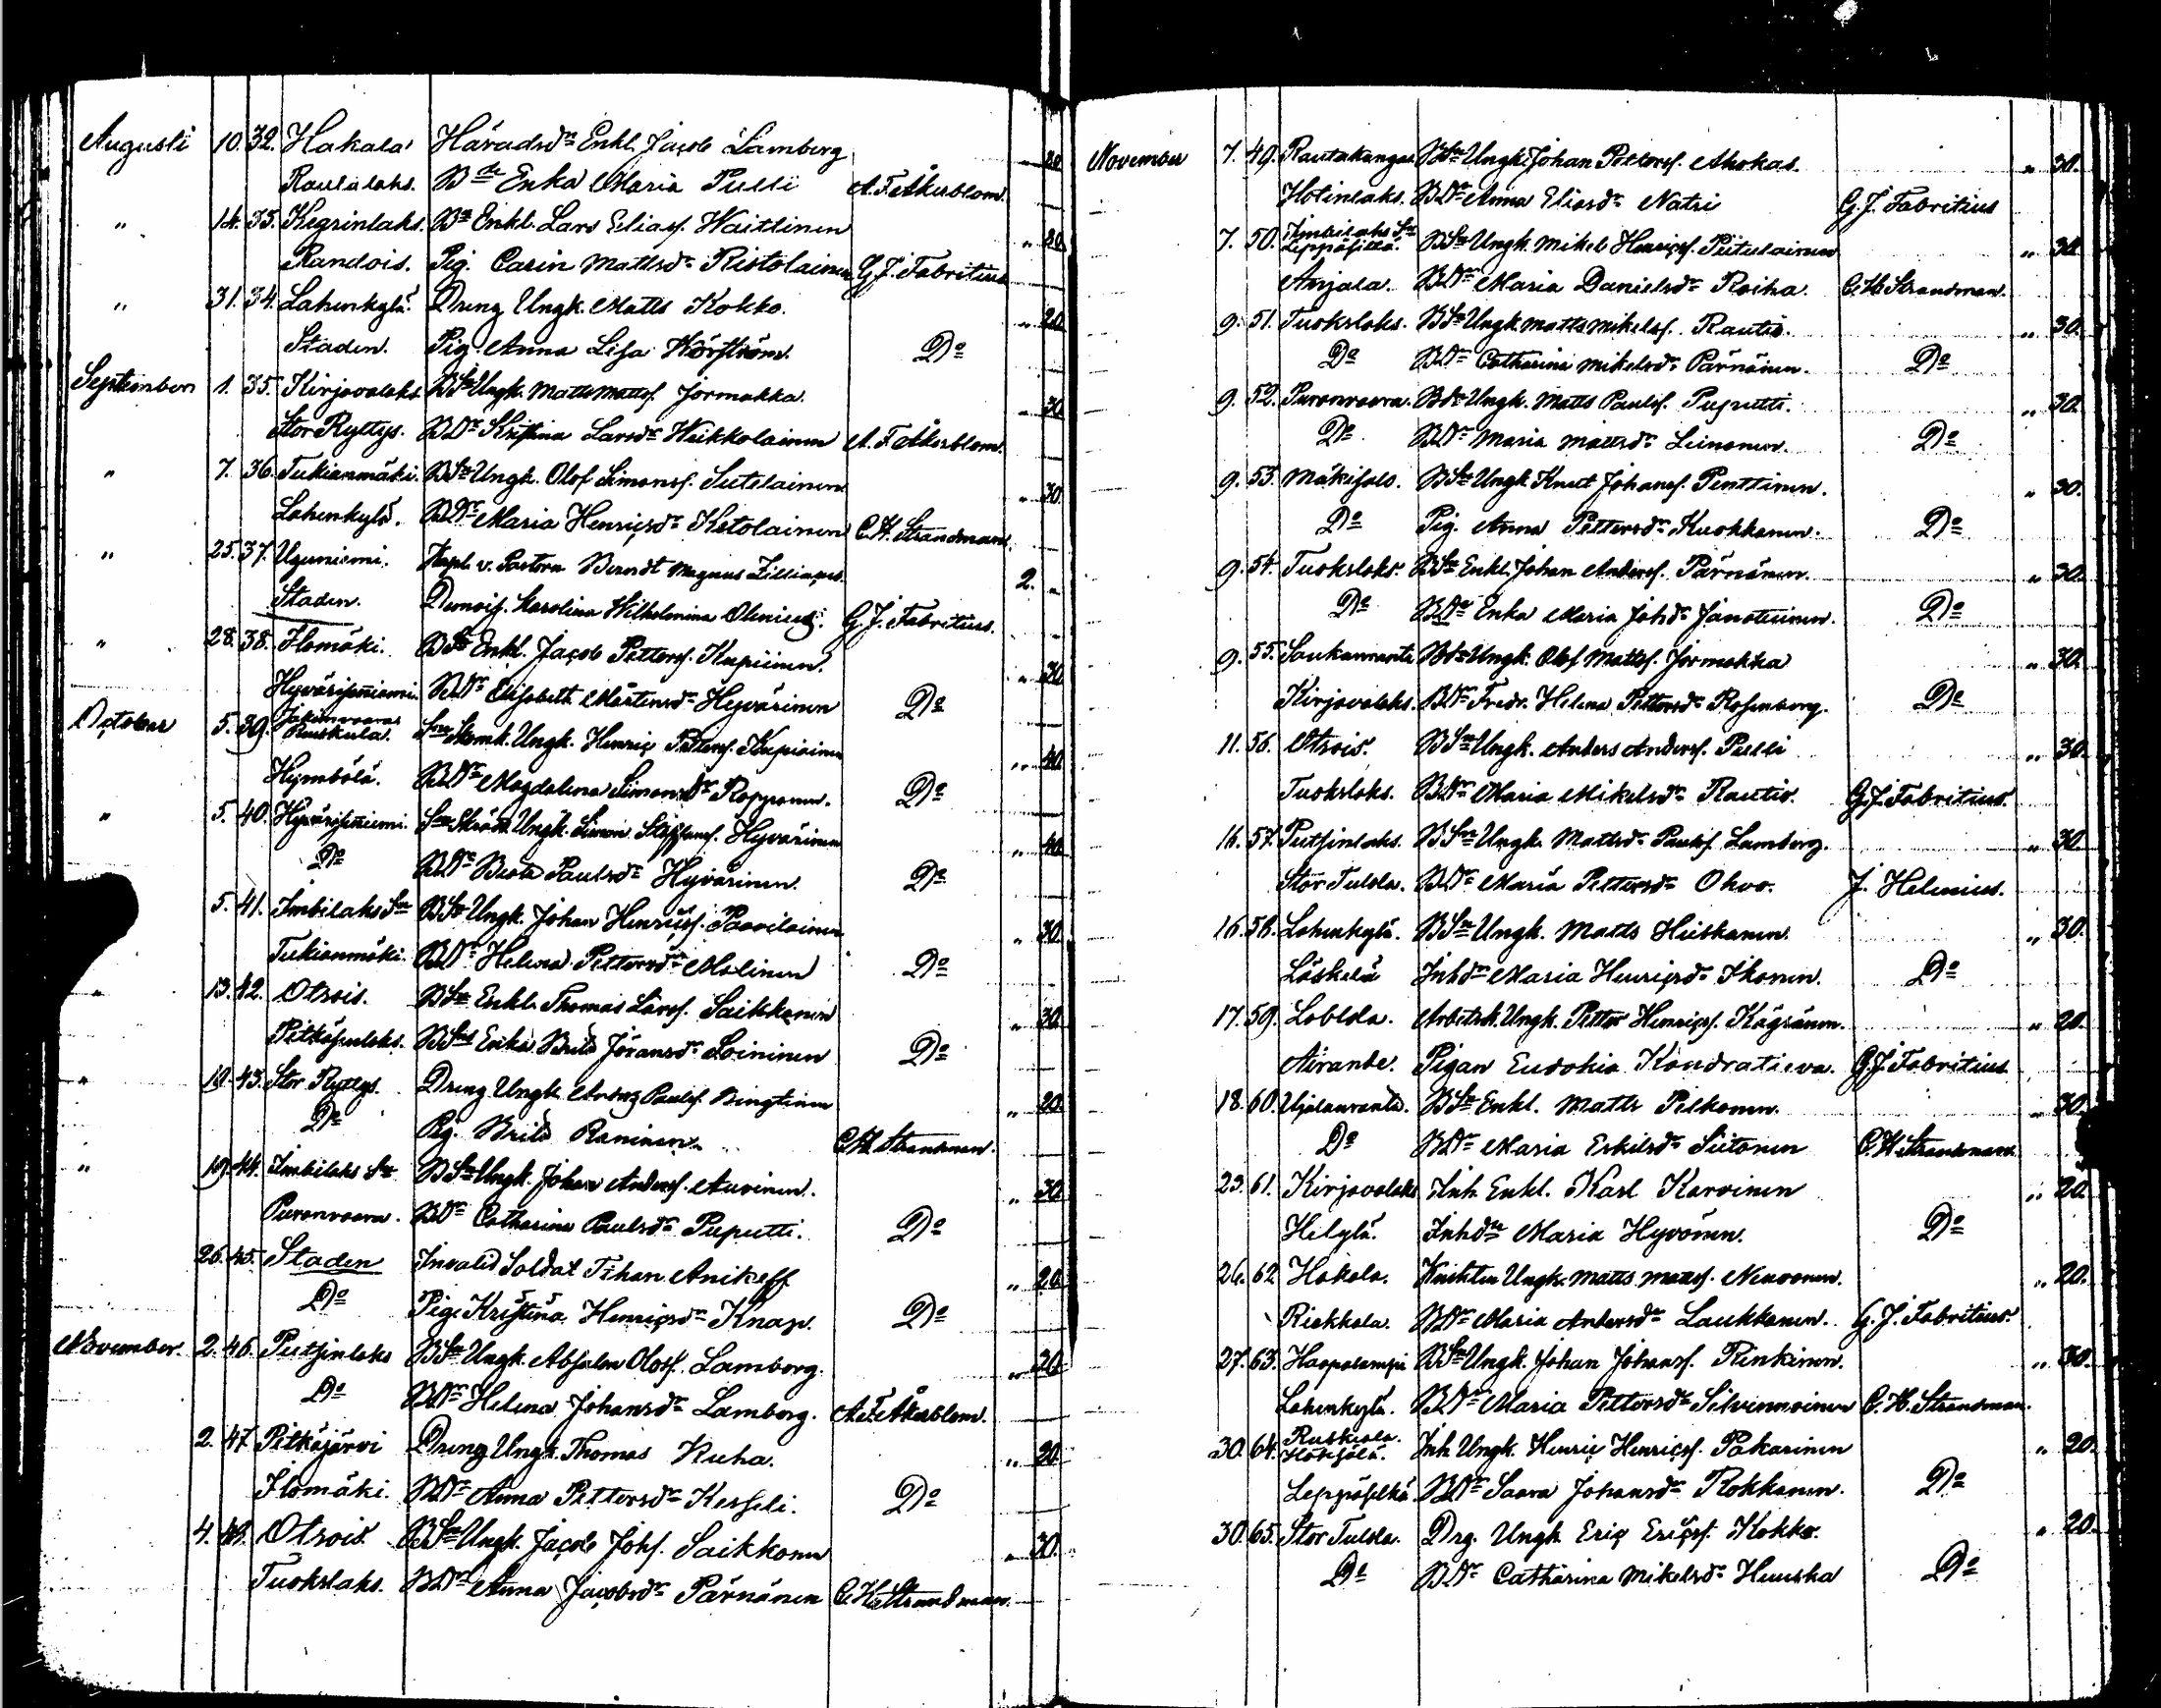 Augusti 10. 32. Hakala Häradsdn Enkl. Jacob Lamberg 20
Rautalaks. Bde Enka Maria Pulli A. F. Åkerblom.
" 14. 33. Kegrinlaks. Bn Enkl. Lars Eliasf. Waitlinen " 30
Randois. Pig. Carin Mattsdr Ristolainen G. J. Fabritius
" 31. 34. Lahenkylä. Dreng Ungk. Matts Kokko. " 20
Staden. Pig. Anna Lisa Do
September 1. 35. Kirjavalaks BSn Ungk. Matts Mattsf. Jormakka " 30
Stor Ryttys. BDr Kristina Larsdr Heikkolainen A. F. Åkerblom.
" 7. 36. Tukianmäki. BSn Ungk. Olof Simonsf. Sutelainen " 30
Lahenkylä. BDr Maria Henricsdr Ketolainen C. H. Strandman
" 25. 37. Uguniemi. Kapl. v. Pastorn Berndt Magnus Zilliacus. 2. "
Staden. Demois. Karolina Wilhelmina Olenius. G. J. Fabritius.
" 28. 38. Ilomäki. BSn Enkl. Jacob Pettersf. Kupiinen. " 30
Hyvärisenniemi. BDr Elisabeth Mårtensdr Hyvärinen Do
October 5. 39. Jakimvaara Ruskula. Ungk. Henric Pettersf. Kupiainen " 40
Hymbölä. BDr Magdalena Simonsdr Do
" 5. 40. Hyvärisenniemi. Ungk. Simon Staffansf. Hyvärinen " 40
Do BDr Beata Paulsdr Hyvärinen. Do
5. 41. Imbilaks Sn BSn Ungk. Johan Henricsf. Paavilainen " 30
Tukianmäki. BDr Helena Pettersdr Molinen Do
" 13. 42. Otsois. BSn Enkl. Thomas Larsf. Saikkonen " 30
Pitkäsenlaks. Enka Brita Jöransdr Loininen Do
" 19. 43. Stor Ryttys. Dreng Ungk. Paulsf. " 20
Do Pig. Brita Raninen. C. H. Strandman.
" 19. 44. Imbilaks Sn BSn Ungk. Johan Andersf. Auvinen. " 30
Puronvaara. BDr Catharina Paulsdr Puputti. Do
26. 45. Staden Invalid Soldat Tihan Anikeff " 20
Do Pig. Kristina Henricsdr Knap. Do
November. 2. 46. Putsinlaks BSn Ungk. Absalon Olofsf. Lamberg. " 30
Do BDr Helena Johansdr Lamberg. A. F. Åkerblom.
2. 47. Pitkäjärvi Dreng Ungk. Thomas Kuha. " 20
Ilomäki. BDr Anna Pettersdr Kesseli. Do
4. 48. Otsois. BSn Ungk. Jacob Johsf. Saikkonen " 30.
Tuokslaks. BDr Anna Jacobsdr Pärnänen C. H. Strandman.
November 7. 49. Rautakangas BSn Ungk. Johan Pettersf. Ahokas. " 30.
Hotinlaks. BDr Anna Eliasdr Natri G. J. Fabritius
7. 50. Imbilaks Sn Leppäsilta. BSn Ungk. Mikel Henricsf. Piitulainen " 30
Anjala. BDr Maria Danielsdr Roiha. C. H. Strandman.
9. 51. Tuokslaks. BSn Ungk. Matts Mikelsf. Rautio. " 30.
Do BDr Catharina Mikelsdr Pärnänen. Do
9. 52. Puronvaara. BSn Ungk. Matts Paulsf. Puputti. " 30.
Do BDr Maria Mattsdr Leinonen. Do
9. 53. Mäkisalo. BSn Ungk. Knut Johansf. Penttinen. " 30.
Do Pig. Anna Pettersdr Kuokkanen. Do
9. 54. Tuokslaks. BSn Enkl. Johan Andersf. Pärnänen. " 30.
Do BDr Enka Maria Johsdr Do
9. 55. Saukanranta BSn Ungk. Olof Mattsf. Jormakka " 30.
Kirjavalaks. BDr Fredr. Helena Pettersdr Rosenborg. Do
11. 56. Otsois. BSn Ungk. Anders Andersf. Pulli " 30.
Tuokslaks. BDr Maria Mikelsdr Rautio. G. J. Fabritius.
16. 57. Putsinlaks. BSn Ungk. Mattsdr Paulsf. Lamberg. " 30.
Stor Tulola. BDr Maria Pettersdr Ohvo. J. Helenius.
16. 58. Lahenkylä. BSn Ungk. Matts Hiiskanen. " 30.
Läskelä Inhdr Maria Henricsdr Ihonen. Do
17. 59. Arbetsk. Ungk. Petter Henricsf. Kägränen. " 20.
Airanne. Pigan Eudokia Kondratieva. G. J. Fabritius
18. 60. Ujalanranta. BSn Enkl. Matts Pelkonen. " 30.
Do BDr Maria Eskilsdr Siitonen C. H. Strandman.
23. 61. Kirjavalaks Inh. Enkl. Karl Karvinen " 20.
Helylä. Inhdr Maria Hyvönen. Do
26. 62. Hakala. Knekten Ungk. Matts Mattsf. Nenonen. " 20.
Riekkala. BDr Maria Andersdr Laukkanen. G. J. Fabritius.
27. 63. Haapalampi BSn Ungk. Johan Johansf. Rinkinen. " 30.
Lahenkylä. BDr Maria Pettersdr Silvennoinen C. H. Strandman.
30. 64. Ruskiala. Inh. Ungk. Henric Henricsf. Pakarinen " 20.
Leppäselkä BDr Saara Johansdr Rokkanen. Do
30. 65. Stor Tulola. Drg. Ungk. Eric Ericsf. Kokko. " 20.
Do BDr Catharina Mikelsdr Huuska Do